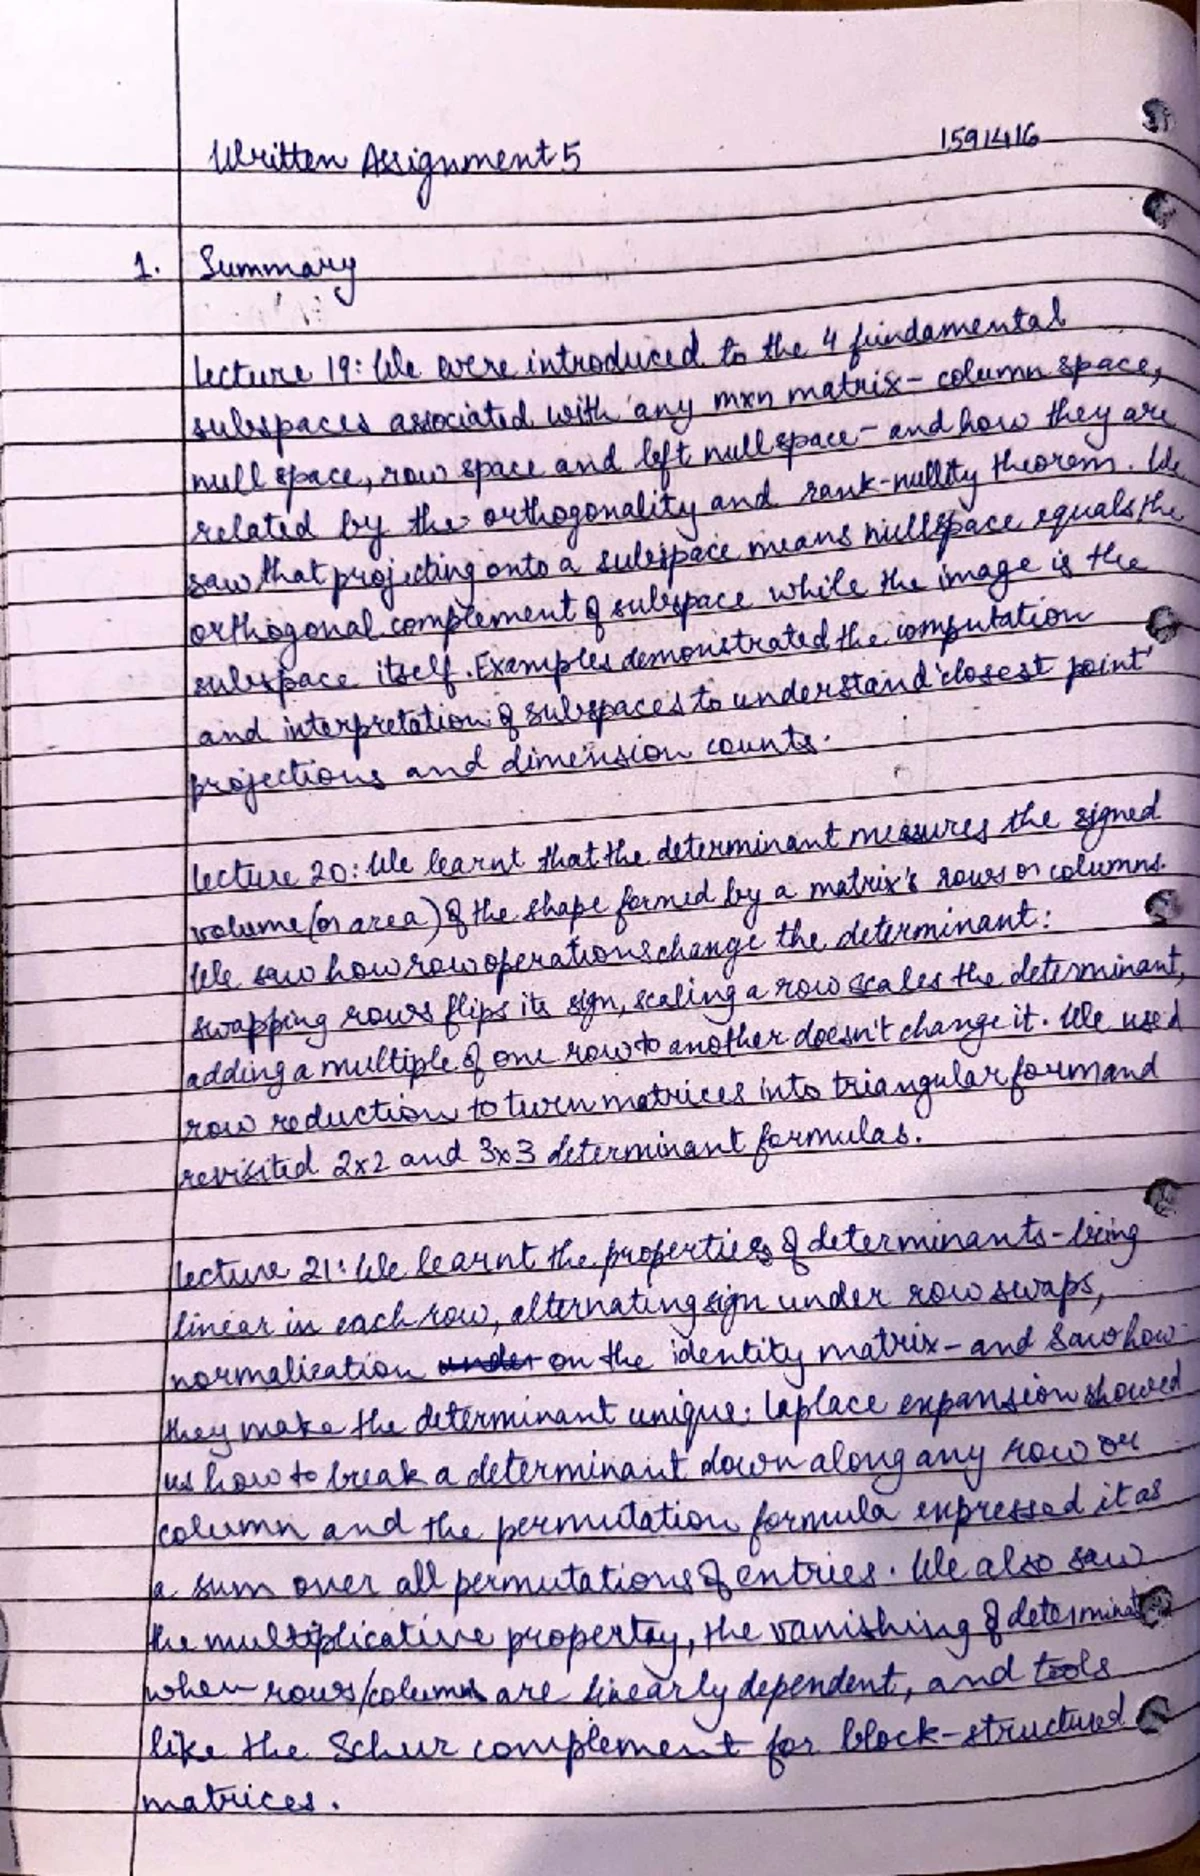 Written Assignment 5
1591416
1. Summary
Lecture 19: We were introduced to the 4 fundamental
subspaces associated with any mxn matrix - column space,
null space, row space and left null space - and how they are
related by the orthogonality and rank-nullity theorem. We
saw that projecting onto a subspace means nullspace equals the
orthogonal complement of subspace while the image is the
subspace itself. Examples demonstrated the computation
and interpretation of subspaces to understand 'closest point'
projections and dimension counts.
Lecture 20: We learnt that the determinant measures the signed
volume (or area) of the shape formed by a matrix's rows or columns.
We saw how row operations change the determinant:
swapping rows flips its sign, scaling a row scales the determinant,
adding a multiple of one row to another doesn't change it. We used
row reduction to turn matrices into triangular form and
revisited 2x2 and 3x3 determinant formulas.
Lecture 21: We learnt the properties of determinants - being
linear in each row, alternating sign under row swaps,
normalization under on the identity matrix - and saw how
they make the determinant unique. Laplace expansion showed
us how to break a determinant down along any row or
column and the permutation formula expressed it as
a sum over all permutations of entries. We also saw
the multiplicative property, the vanishing of determinat
when rows/columns are linearly dependent, and tools
like the Schur complement for block-structured
matrices.